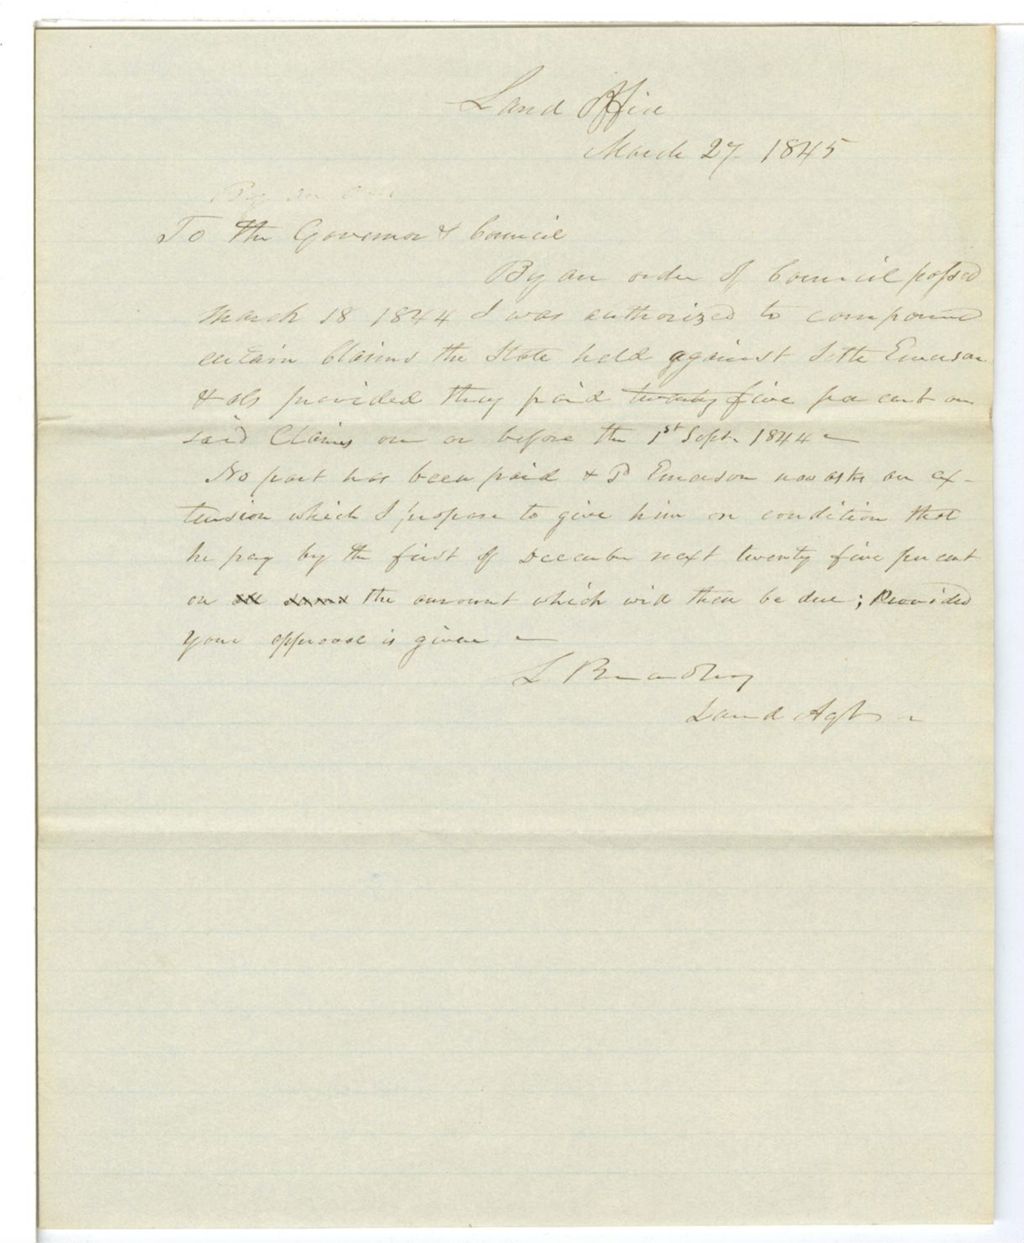 Land Office
March 27. 1845
By an ord
To the Governor & Council
By an order of Council passed
March 18 1844 I was authorized to compound
certain Claims the State held against Seth Emerson
& als provided they paid twenty five per cent on
said Claims on or before the 1st Sept. 1844 –
No part has been paid & Sd Emerson now asks an ex-
tension which I propose to give him on condition that
he pay by the first of December next twenty five per cent
on the amount which will then be due; Provided
Your approval is given –
L Bradley
Land Agt –